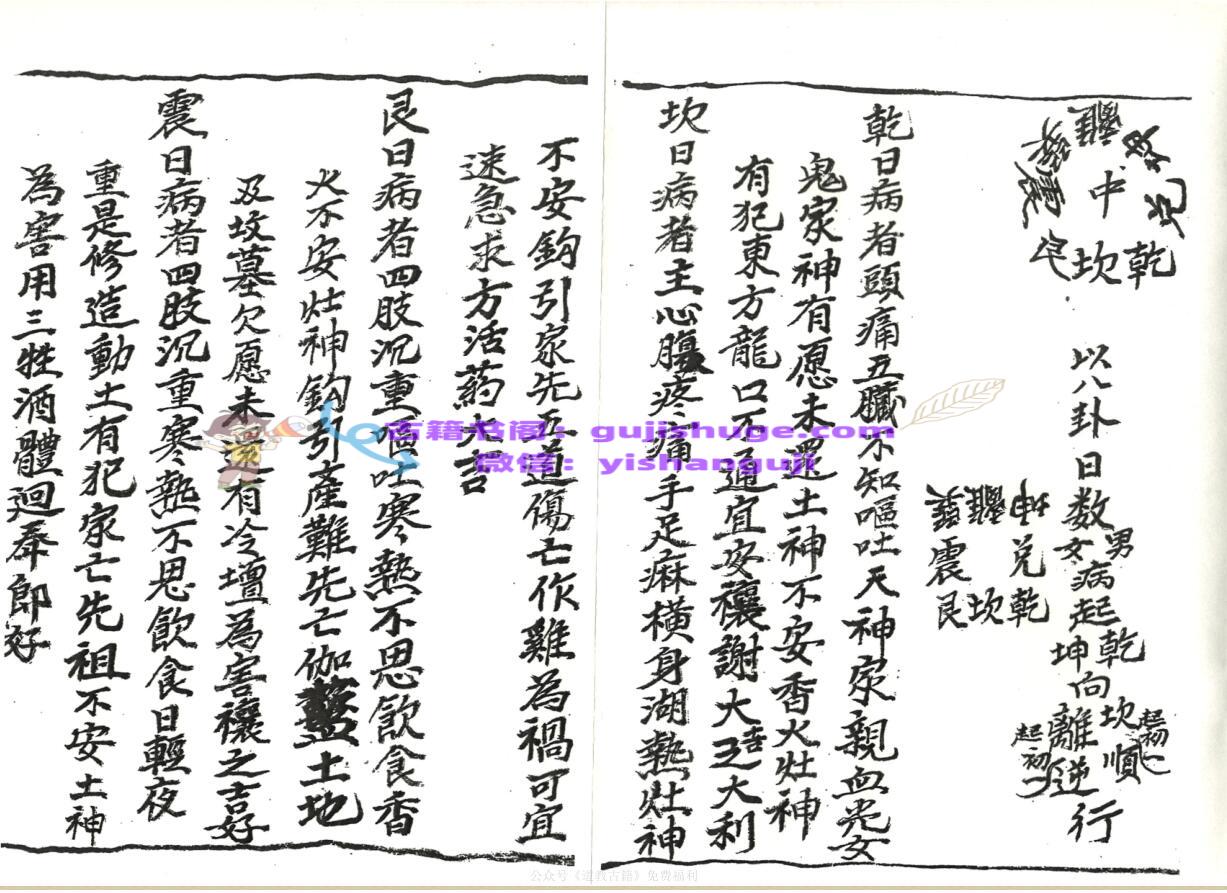 離 坤 兌
巽震 中
艮坎乾
以八卦日数男女病起乾坤向坎離順逆行
起初一
起初一
巽離坤
震 兌
艮坎乾
乾日病者頭痛五臟不知嘔吐天神家親血光女
鬼家神有愿未还土神不安香火灶神
有犯東方龍口不通宜安禳謝大吉大利
坎日病者主心腸疼痛手足麻橫身湖熱灶神
不安鈎引家先五道傷亡作雞為禍可宜
速急求方活药大吉
艮日病者四肢沉重嘔吐寒熱不思飲食香
火不安灶神鈎引產難先亡伽藍土地
及坟墓欠愿未还有冷壇為害禳之吉好
震日病者四肢沉重寒熱不思飲食日輕夜
重是修造動土有犯家亡先祖不安土神
為害用三牲酒體迴奉郎好
古籍书阁：gujishuge.com
微信：yishanguji
公众号《道教古籍》免费福利